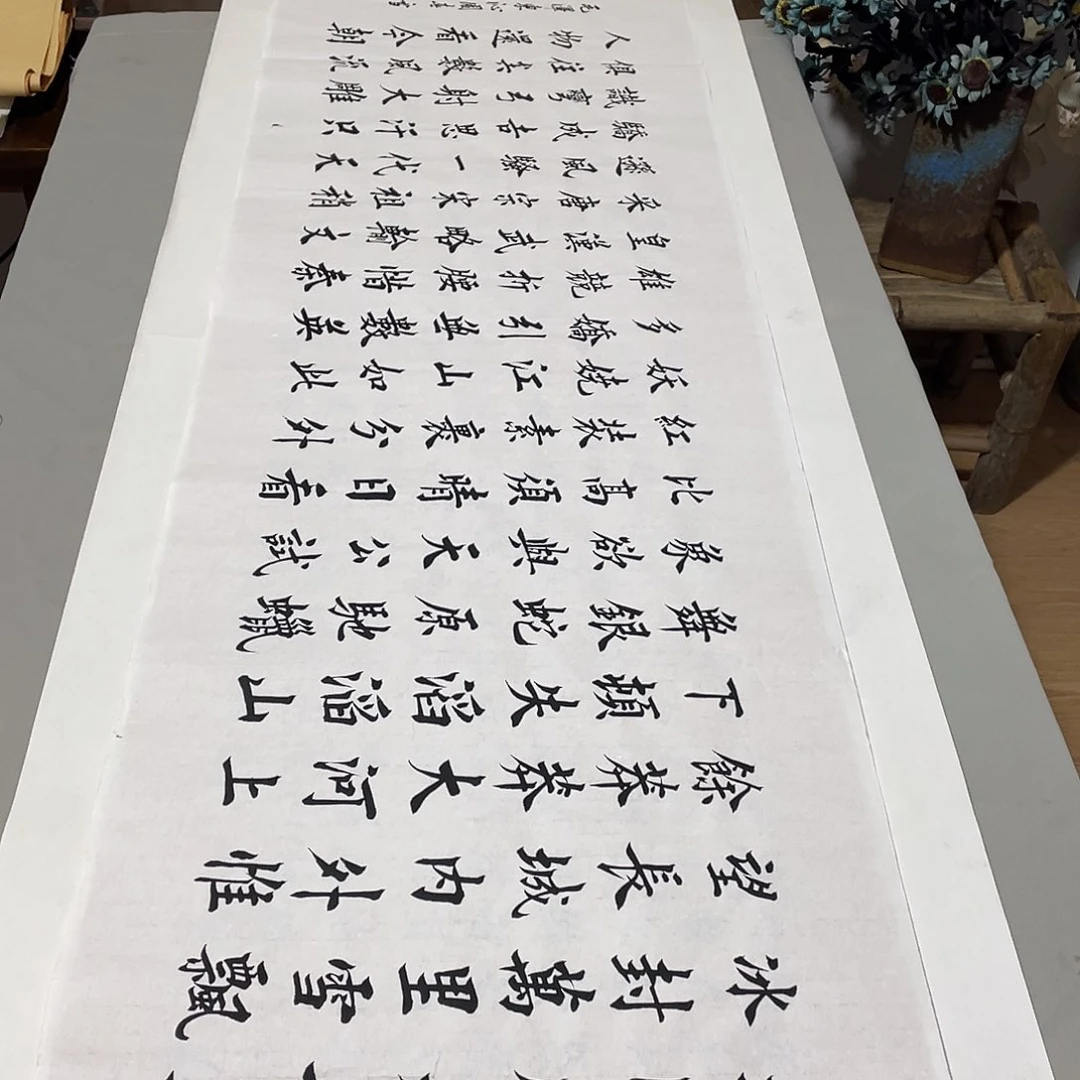 冰封萬里雪飄
望長城內外惟
餘莽莽大河上
下頓失滔滔山
舞銀蛇原馳蠟
象欲與天公試
比高須晴日看
紅裝素裹分外
妖嬈江山如此
多嬌引無數英
雄競折腰惜秦
皇漢武略輸文
采唐宗宋祖稍
遜風騷一代天
驕成吉思汗只
識彎弓射大雕
俱往矣數風流
人物還看今朝
毛澤東沁園春雪